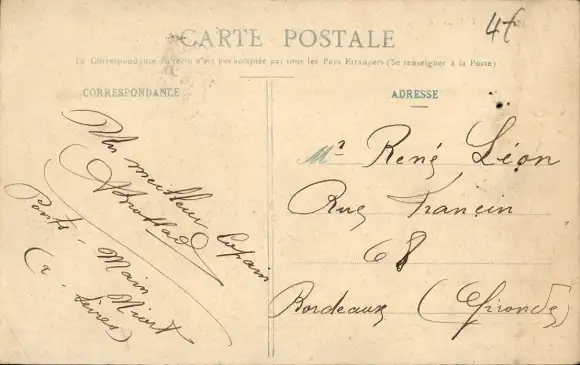 4f
CARTE POSTALE
La Correspondance au recto n'est pas acceptée par tous les Pays Etrangers (Se renseigner à la Poste)
CORRESPONDANCE
ADRESSE
Un meilleur Copain
Ponts. Main
Niort
Sèvres)
Mr René Léon
Rue Françin
68
Bordeaux (Gironde)